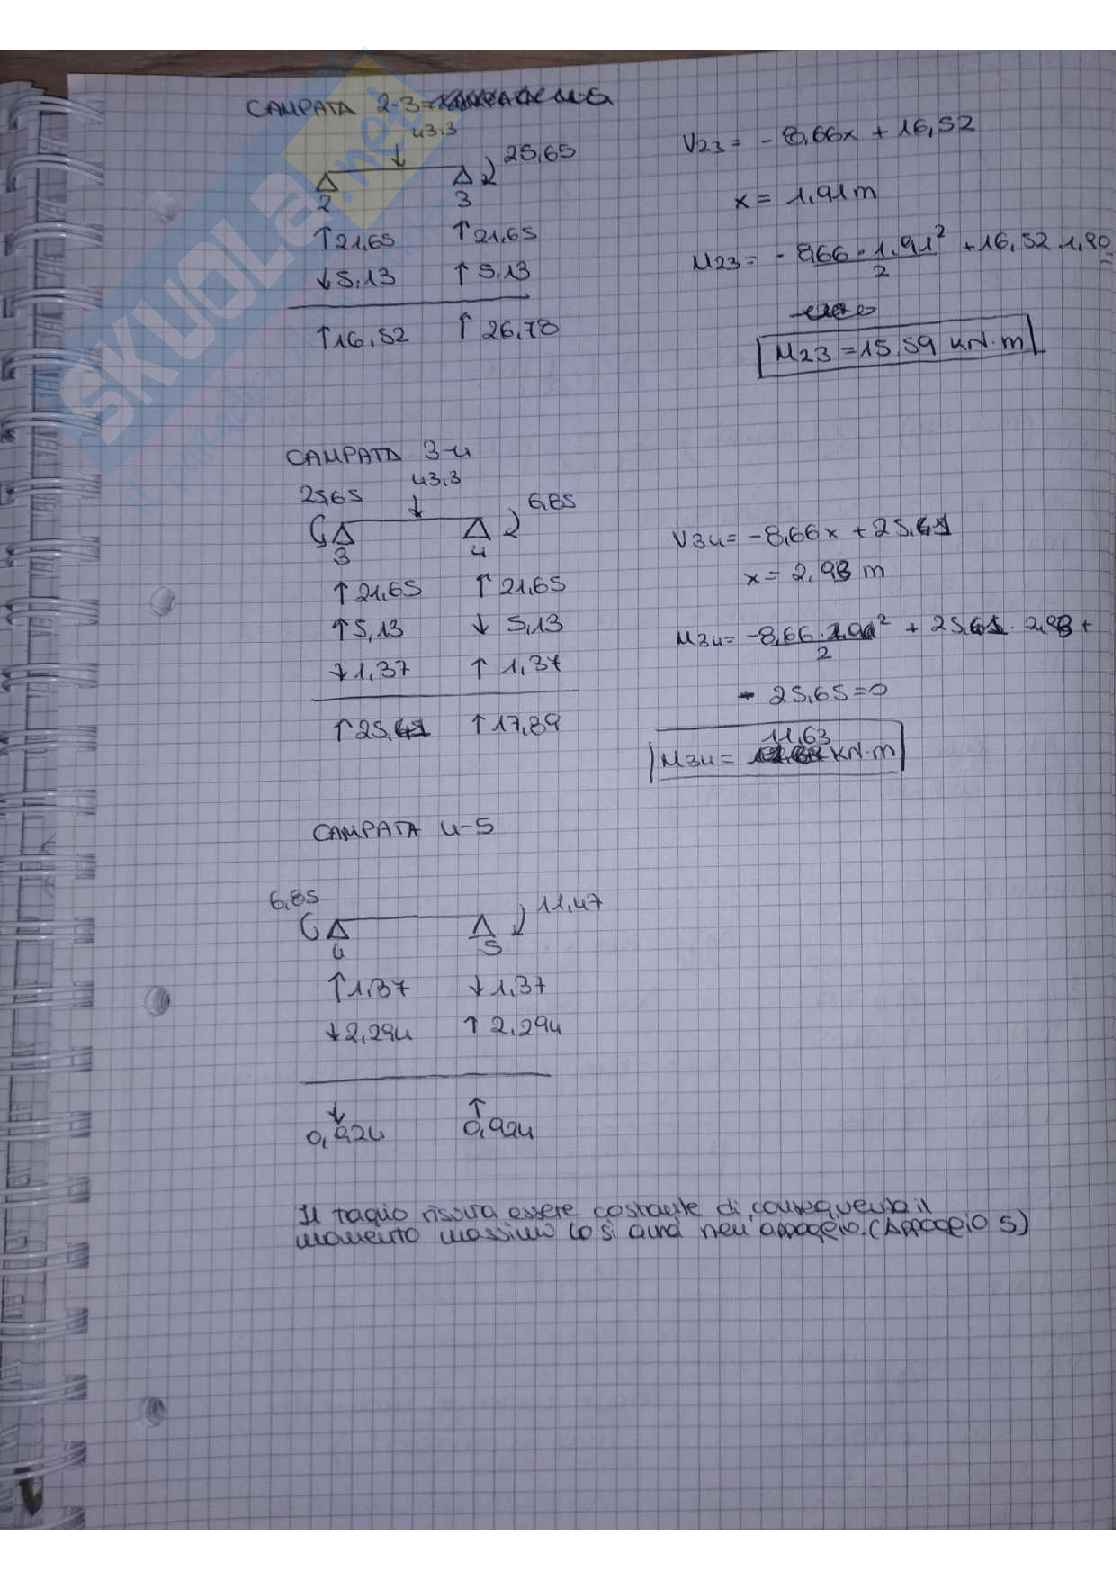 CAMPATA 2-3
43,3
25,65
2 3
↑21,65 ↑21,65
↓5,13 ↑5,13
↑16,52 ↑26,78
V23 = -8,66x + 16,52
x = 1,91 m
M23 = - 8,66 · 1,91² + 16,52 · 1,90
2
M23 = 15,59 kN·m
CAMPATA 3-4
25,65 43,3 6,85
3 4
↑21,65 ↑21,65
↑5,13 ↓5,13
↓1,37 ↑1,37
↑25,41 ↑17,89
V34 = -8,66x + 25,41
x = 2,93 m
M34 = -8,66 · ² + 25,41 · 2,93 +
2
- 25,65 = 0
11,63
M34 = kN·m
CAMPATA 4-5
6,85 11,47
4 5
↑1,37 ↓1,37
↓2,294 ↑2,294
↓ ↑
0,924 0,924
Il taglio risulta essere costante di conseguenza il
momento massimo lo si avrà nell'appoggio. (Appoggio 5)
SKUOLA.net